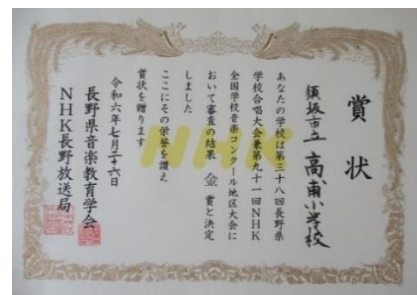 賞状
須坂市立 高甫小学校
あなたの学校は第三十八回長野県
学校合唱大会兼第九十一回NHK
全国学校音楽コンクール地区大会に
おいて審査の結果 金 賞と決定
しました
ここにその栄誉を讃え
賞状を贈ります
令和六年七月二十六日
長野県音楽教育学会
NHK長野放送局
NHK